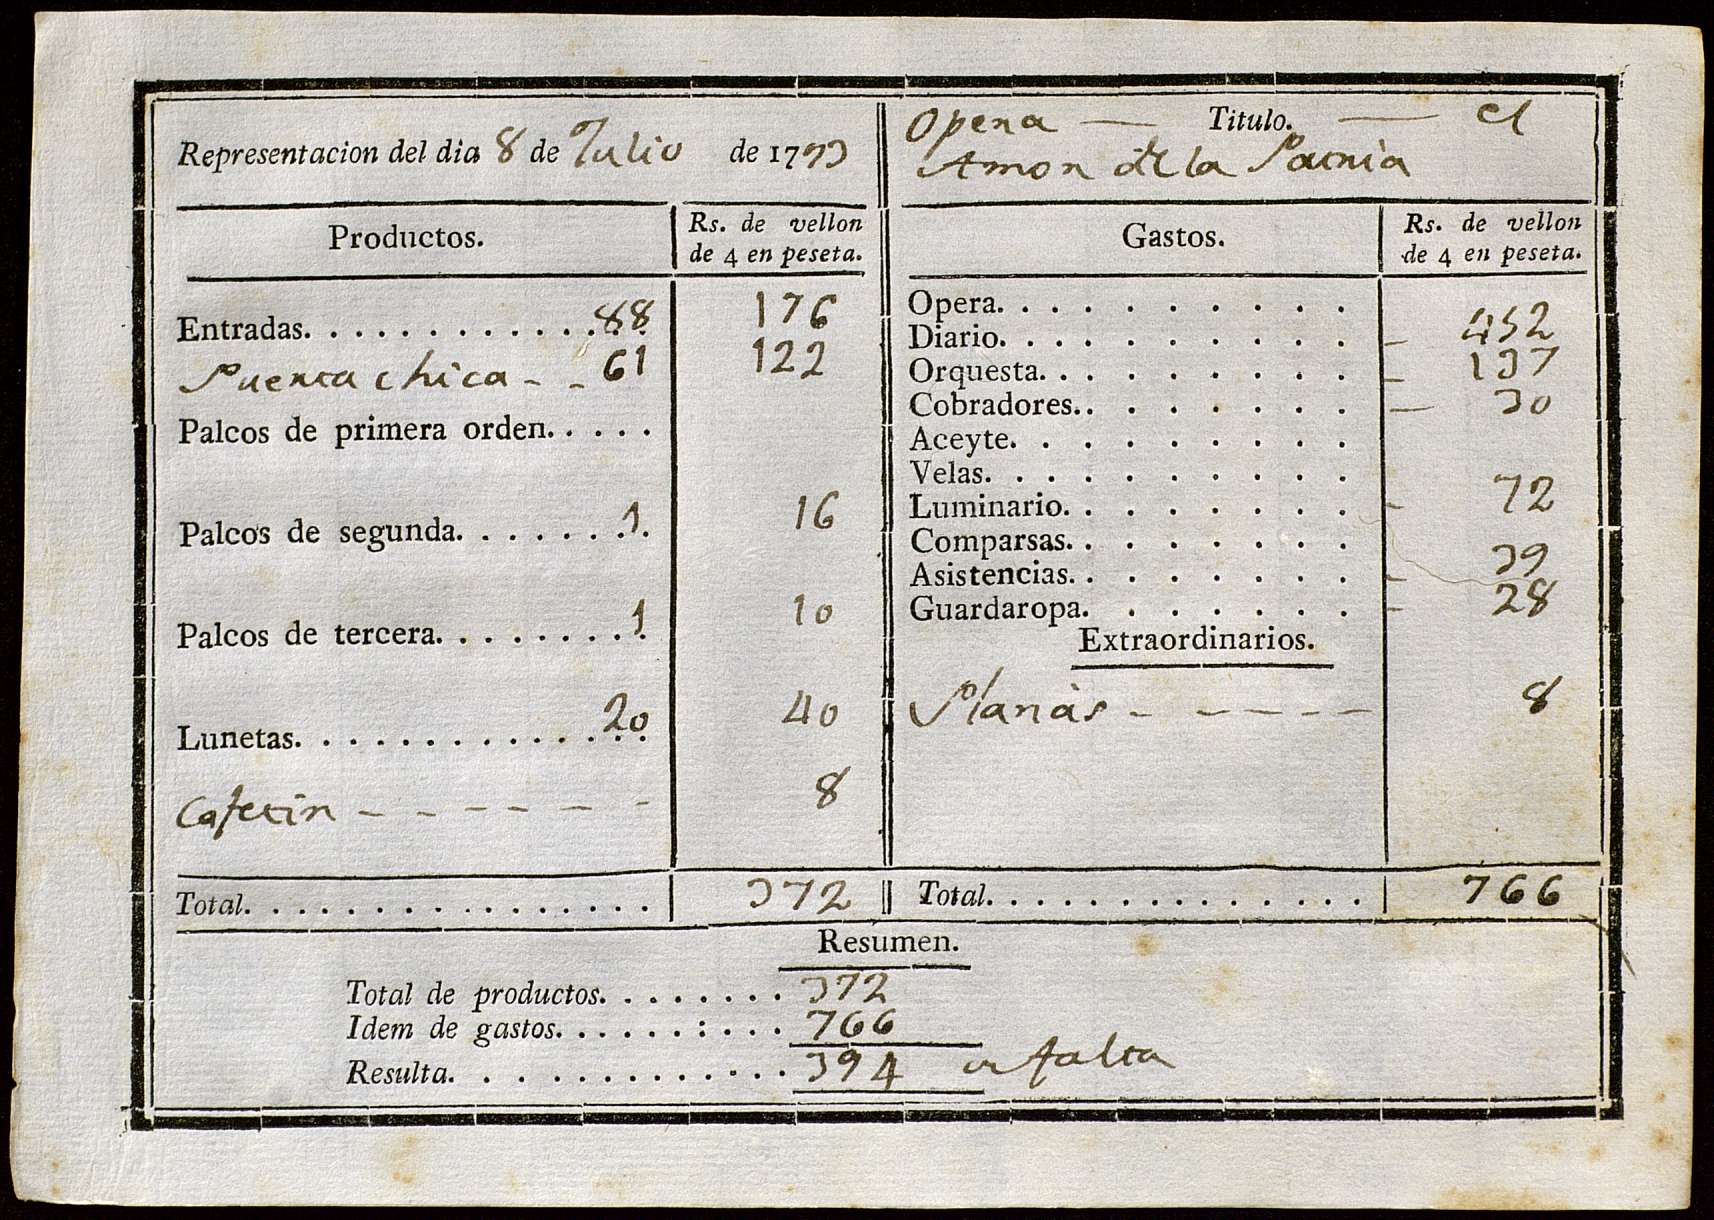 Representacion del dia 8 de Julio de 1793
Opera — Titulo. — el
Amor de la Patria
Productos.
Rs. de vellon
de 4 en peseta.
Entradas. . . . . . . . . . . . . . 88 176
Puerta chica - - 61 122
Palcos de primera orden. . . . .
Palcos de segunda. . . . . . . . 1 16
Palcos de tercera. . . . . . . . . 1 10
Lunetas. . . . . . . . . . . . . . 20 40
Cafetin - - - - - - 8
Total. . . . . . . . . . . . . . . . 372
Gastos.
Rs. de vellon
de 4 en peseta.
Opera. . . . . . . . . .
Diario. . . . . . . . . . - 452
Orquesta. . . . . . . . . - 137
Cobradores. . . . . . . . — 30
Aceyte. . . . . . . . .
Velas. . . . . . . . . .
Luminario. . . . . . . . - 72
Comparsas. . . . . . . .
Asistencias. . . . . . . . - 39
Guardaropa. . . . . . . - 28
Extraordinarios.
- - - - - 8
Total. . . . . . . . . . . . . . . 766
Resumen.
Total de productos. . . . . . . . 372
Idem de gastos. . . . . . : . . . 766
Resulta. . . . . . . . . . . . . 394 en falta